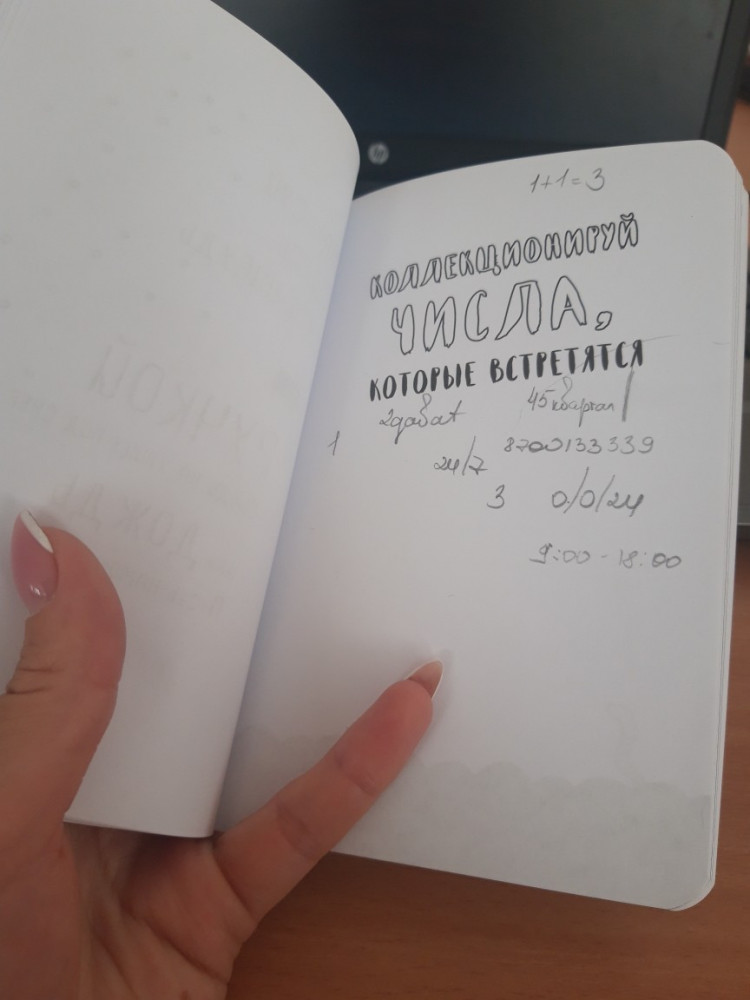 hp
1+1=3
КОЛЛЕКЦИОНИРУЙ
ЧИСЛА,
КОТОРЫЕ ВСТРЕТЯТСЯ
45 квартал
1
24/7 8700133339
3 0/0/24
9:00 - 18:00